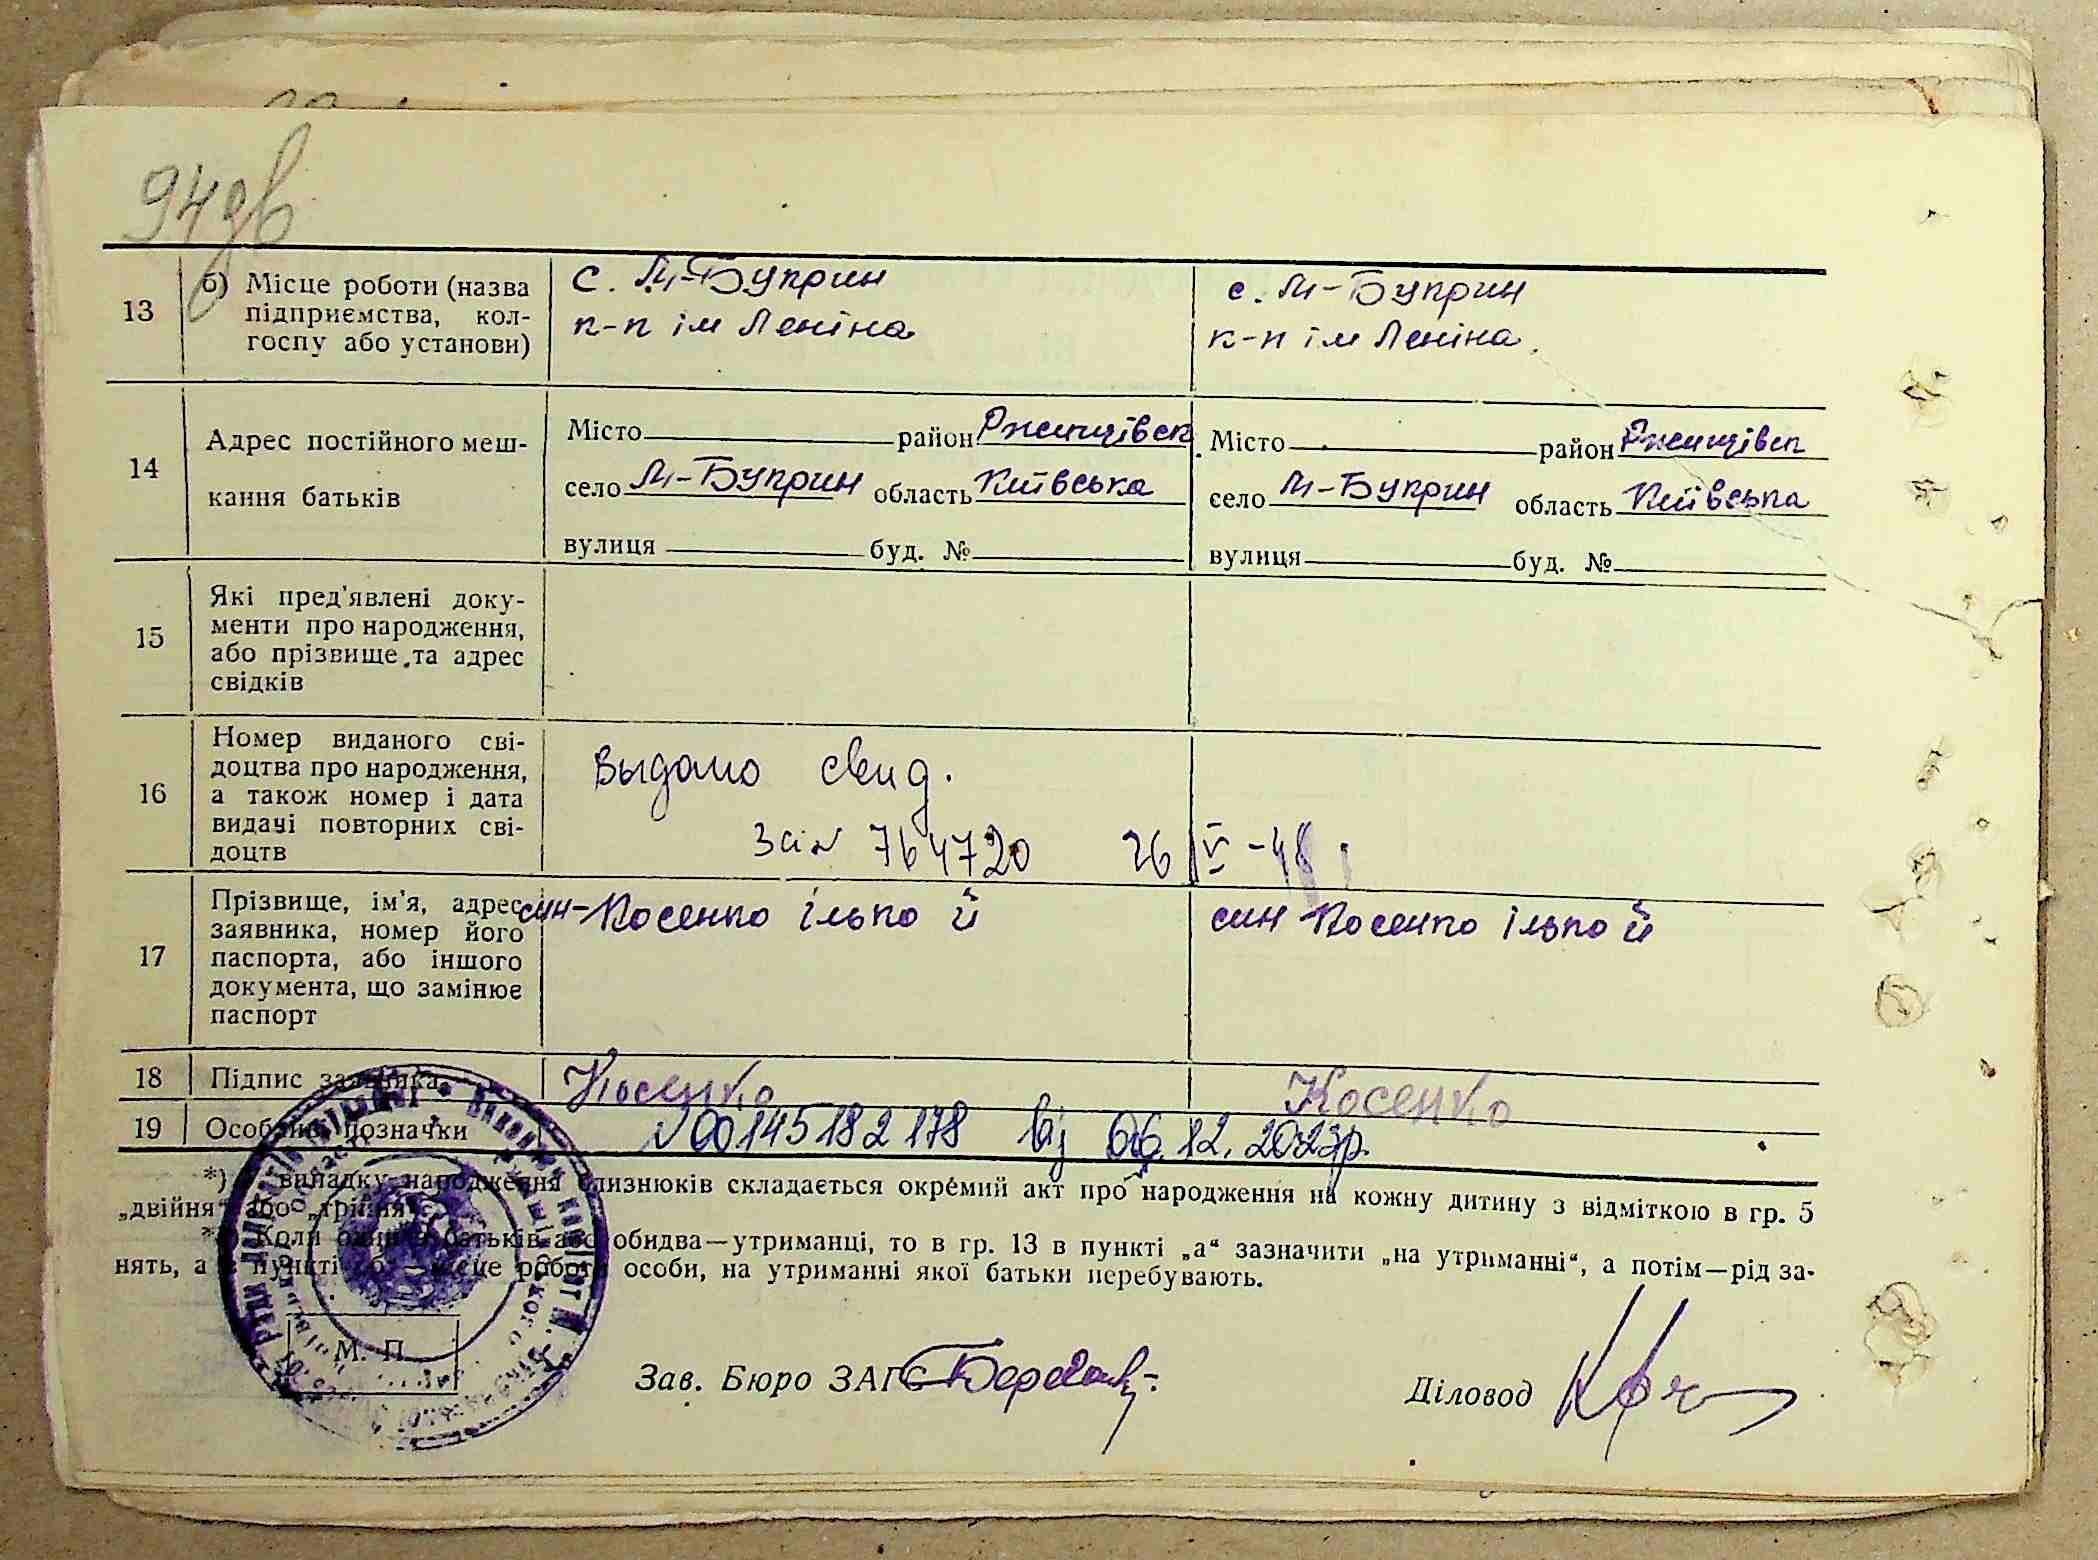 94 зв
13 б) Місце роботи (назва підприємства, колгоспу або установи)
с. М-Букрин
к-п ім Леніна
с. М-Букрин
к-п ім Леніна.
14 Адрес постійного мешкання батьків
Місто район Ржищівськ
село М-Букрин область Київська
вулиця буд. №
Місто район Ржищівск
село М-Букрин область Київська
вулиця буд. №
15 Які пред'явлені документи про народження, або прізвище та адрес свідків
16 Номер виданого свідоцтва про народження, а також номер і дата видачі повторних свідоцтв
Выдано свид.
за № 764720 26/V-48
17 Прізвище, ім'я, адрес заявника, номер його паспорта, або іншого документа, що замінює паспорт
син-Косенко ілько й
син Косенко ілько й
18 Підпис заявника
Косенко
Косенко
19 Особливі позначки
№ 00145182178 від 06.12.2023р.
*) У випадку народження близнюків складається окремий акт про народження на кожну дитину з відміткою в гр. 5
„двійня“ або „трійня“.
**) Коли один з батьків або обидва—утриманці, то в гр. 13 в пункті „а“ зазначити „на утриманні“, а потім—рід за-
нять, а в пункті „б“—місце роботи особи, на утриманні якої батьки перебувають.
М. П.
Зав. Бюро ЗАГС
Діловод